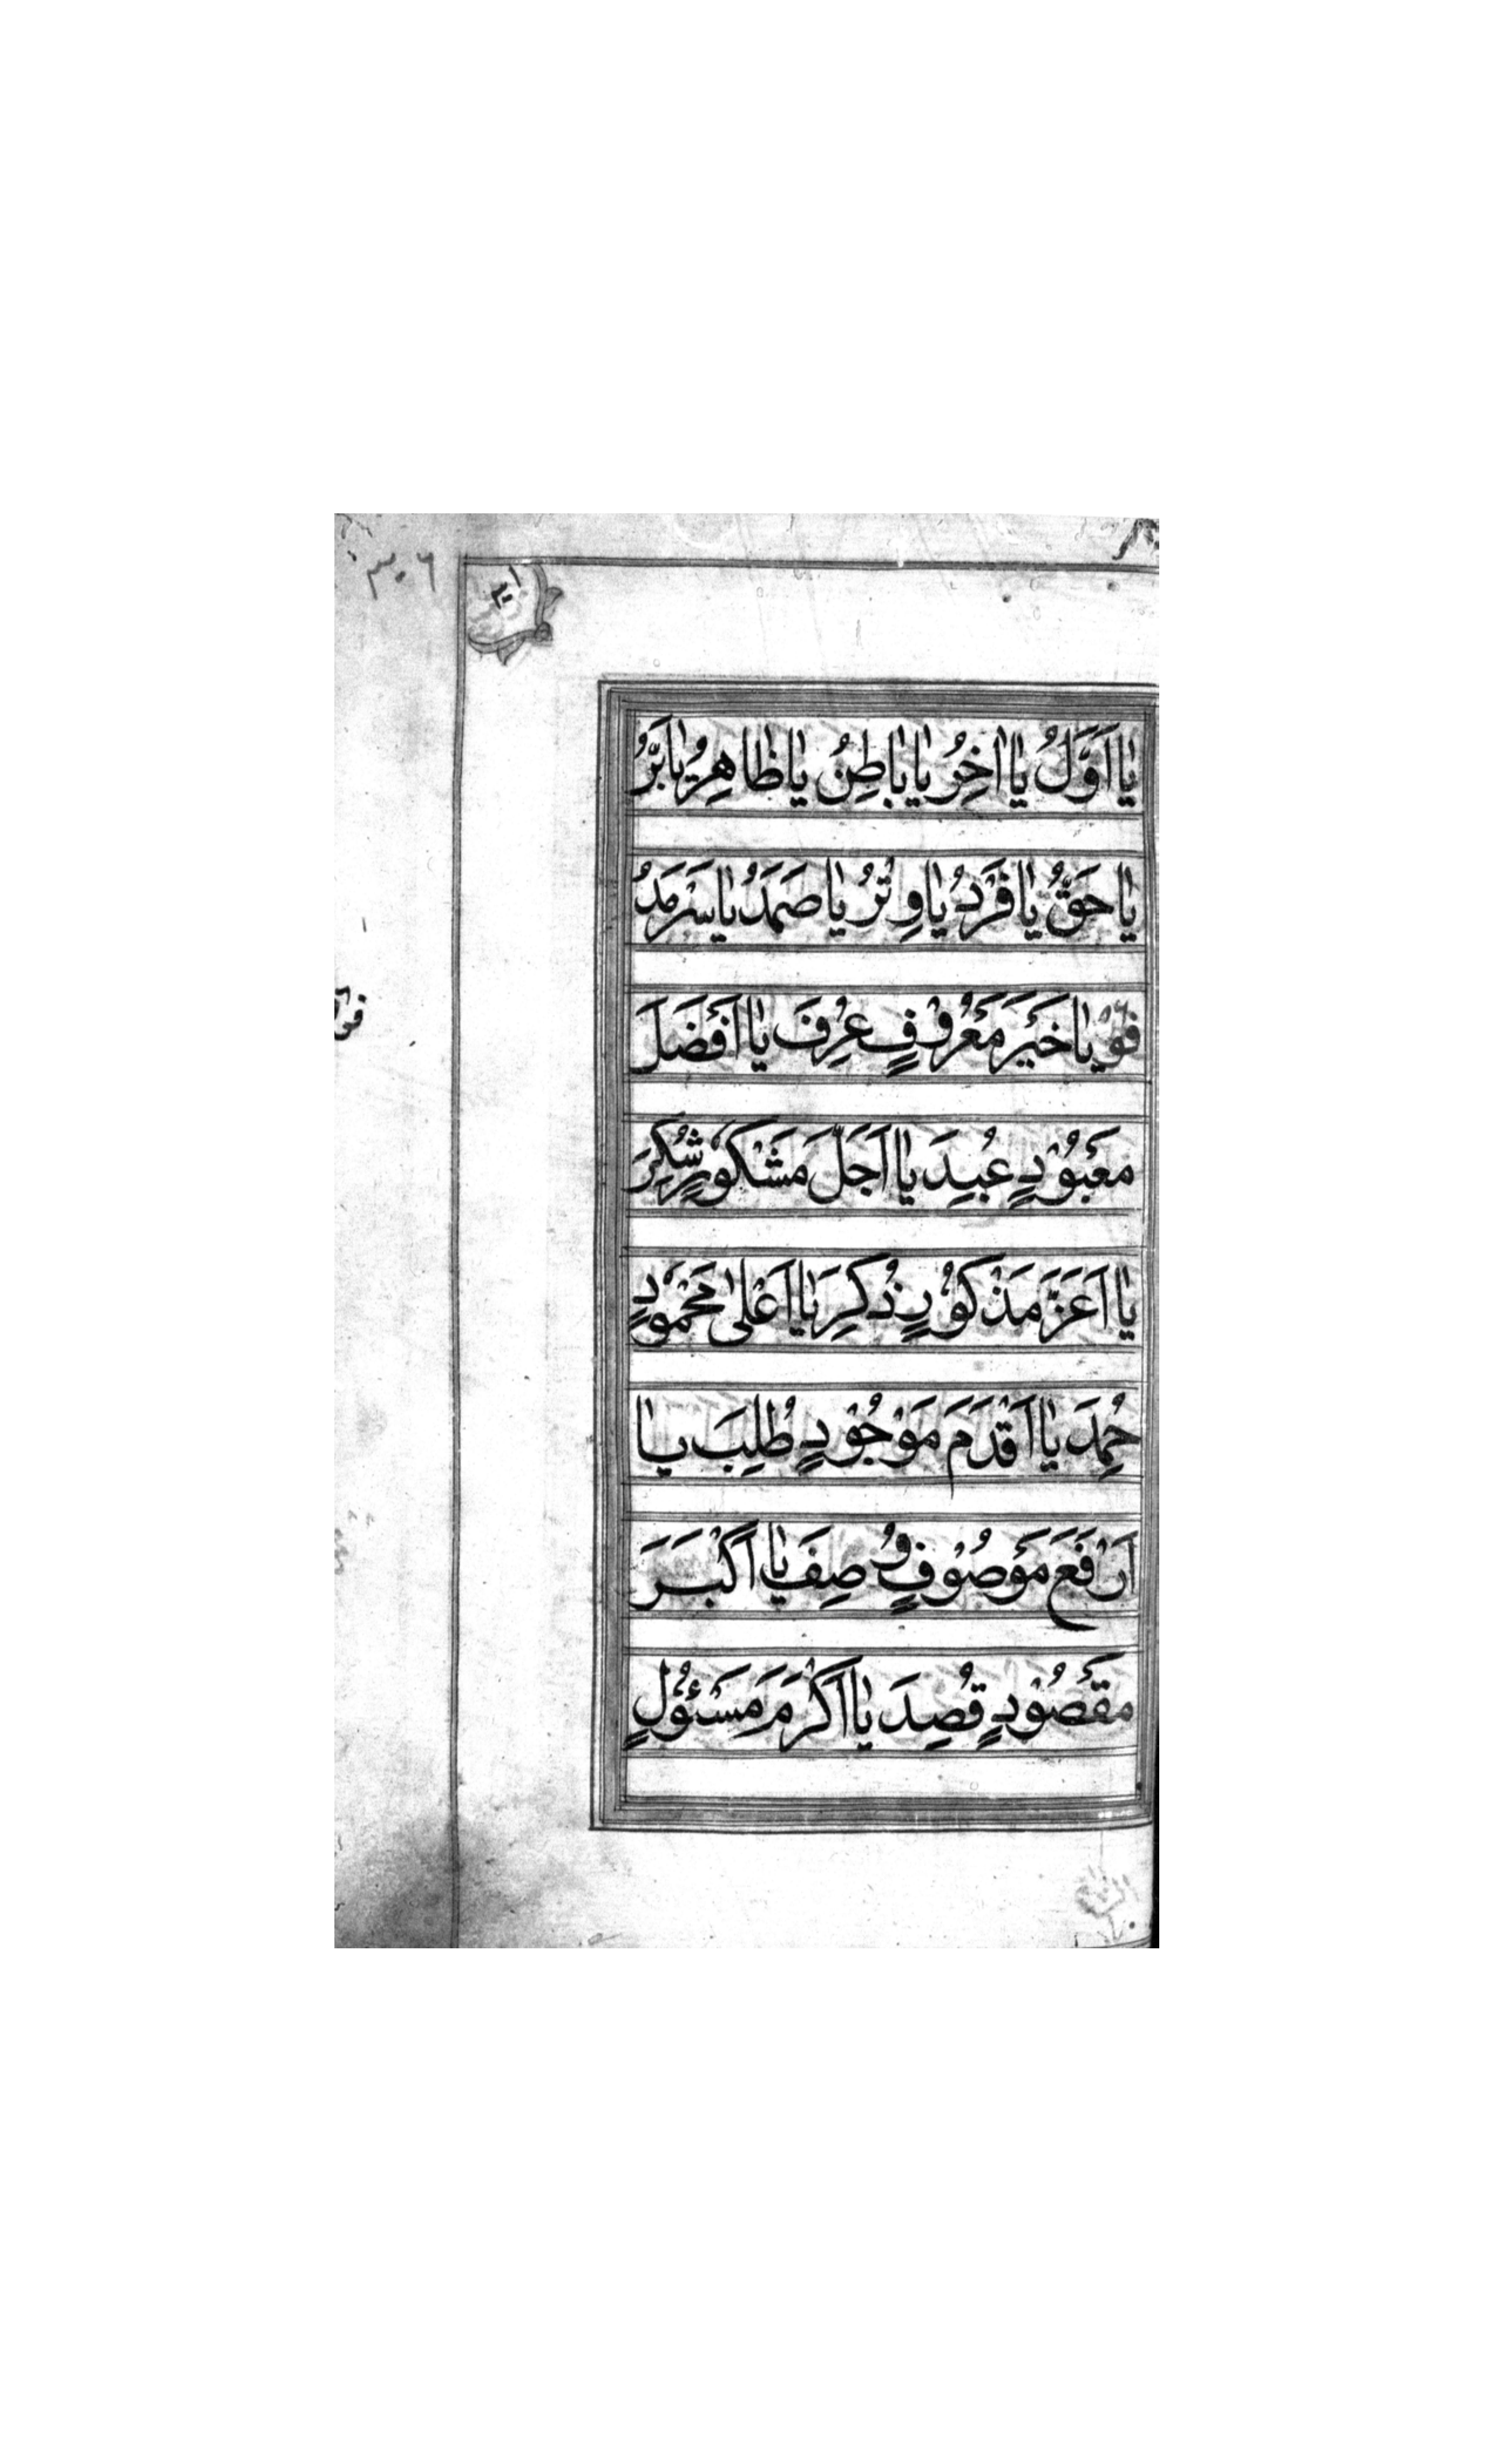 ٣٠٦
يٰا اَوَّلُ يٰا اٰخِرُ يٰا بٰاطِنُ يٰا ظٰاهِرُ يٰا بَرُّ
يٰا حَقُّ يٰا فَرْدُ يٰا وِتْرُ يٰا صَمَدُ يٰا سَرْمَدُ
يٰا خَيْرَ مَعْرُوْفٍ عُرِفَ يٰا اَفْضَلَ
مَعْبُوْدٍ عُبِدَ يٰا اَجَلَّ مَشْكُوْرٍ شُكِرَ
يٰا اَعَزَّ مَذْكُوْرٍ ذُكِرَ يٰا اَعْلىٰ مَحْمُوْدٍ
حُمِدَ يٰا اَقْدَمَ مَوْجُوْدٍ طُلِبَ يٰا
اَرْفَعَ مَوْصُوْفٍ وُصِفَ يٰا اَكْبَرَ
مَقْصُوْدٍ قُصِدَ يٰا اَكْرَمَ مَسْئُوْلٍ